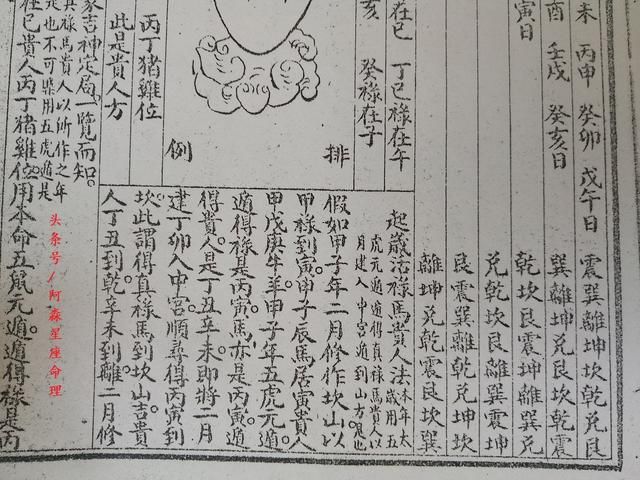 未 丙申 癸卯 戊午日
震巽離坤坎乾兌艮
酉 壬戌 癸亥日
巽離坤兌艮坎乾震
寅日
乾坎艮震坤離巽兌
兌乾坎艮巽離震坤
艮震巽離乾兌坤坎
離坤兌乾震艮坎巽
在巳 丁巳祿在午
亥 癸祿在子
排
例
丙丁豬雞位
此是貴人方
起歲活祿馬貴人法本年太歲用五
虎元遁遁得真祿馬貴人以
月建入中宮遁到山方是也
假如甲子年二月修作坎山以
甲祿到寅。甲子辰馬居寅貴人
甲戊庚牛羊。甲子年五虎元遁
遁得祿是丙寅。馬亦是丙寅。遁
得貴人是丁丑辛未。即將二月
建丁卯入中宮順尋得丙寅到
坎。此謂得真祿馬到坎山吉。貴
人丁丑到乾。辛未到離。二月修
家吉神定局。一覽而知。
真祿馬貴人以所作之年
是也不可槩用五虎遁是
在巳貴人丙丁豬雞位。用本命五鼠元遁。遁得祿是丙
头条号/阿森星座命理